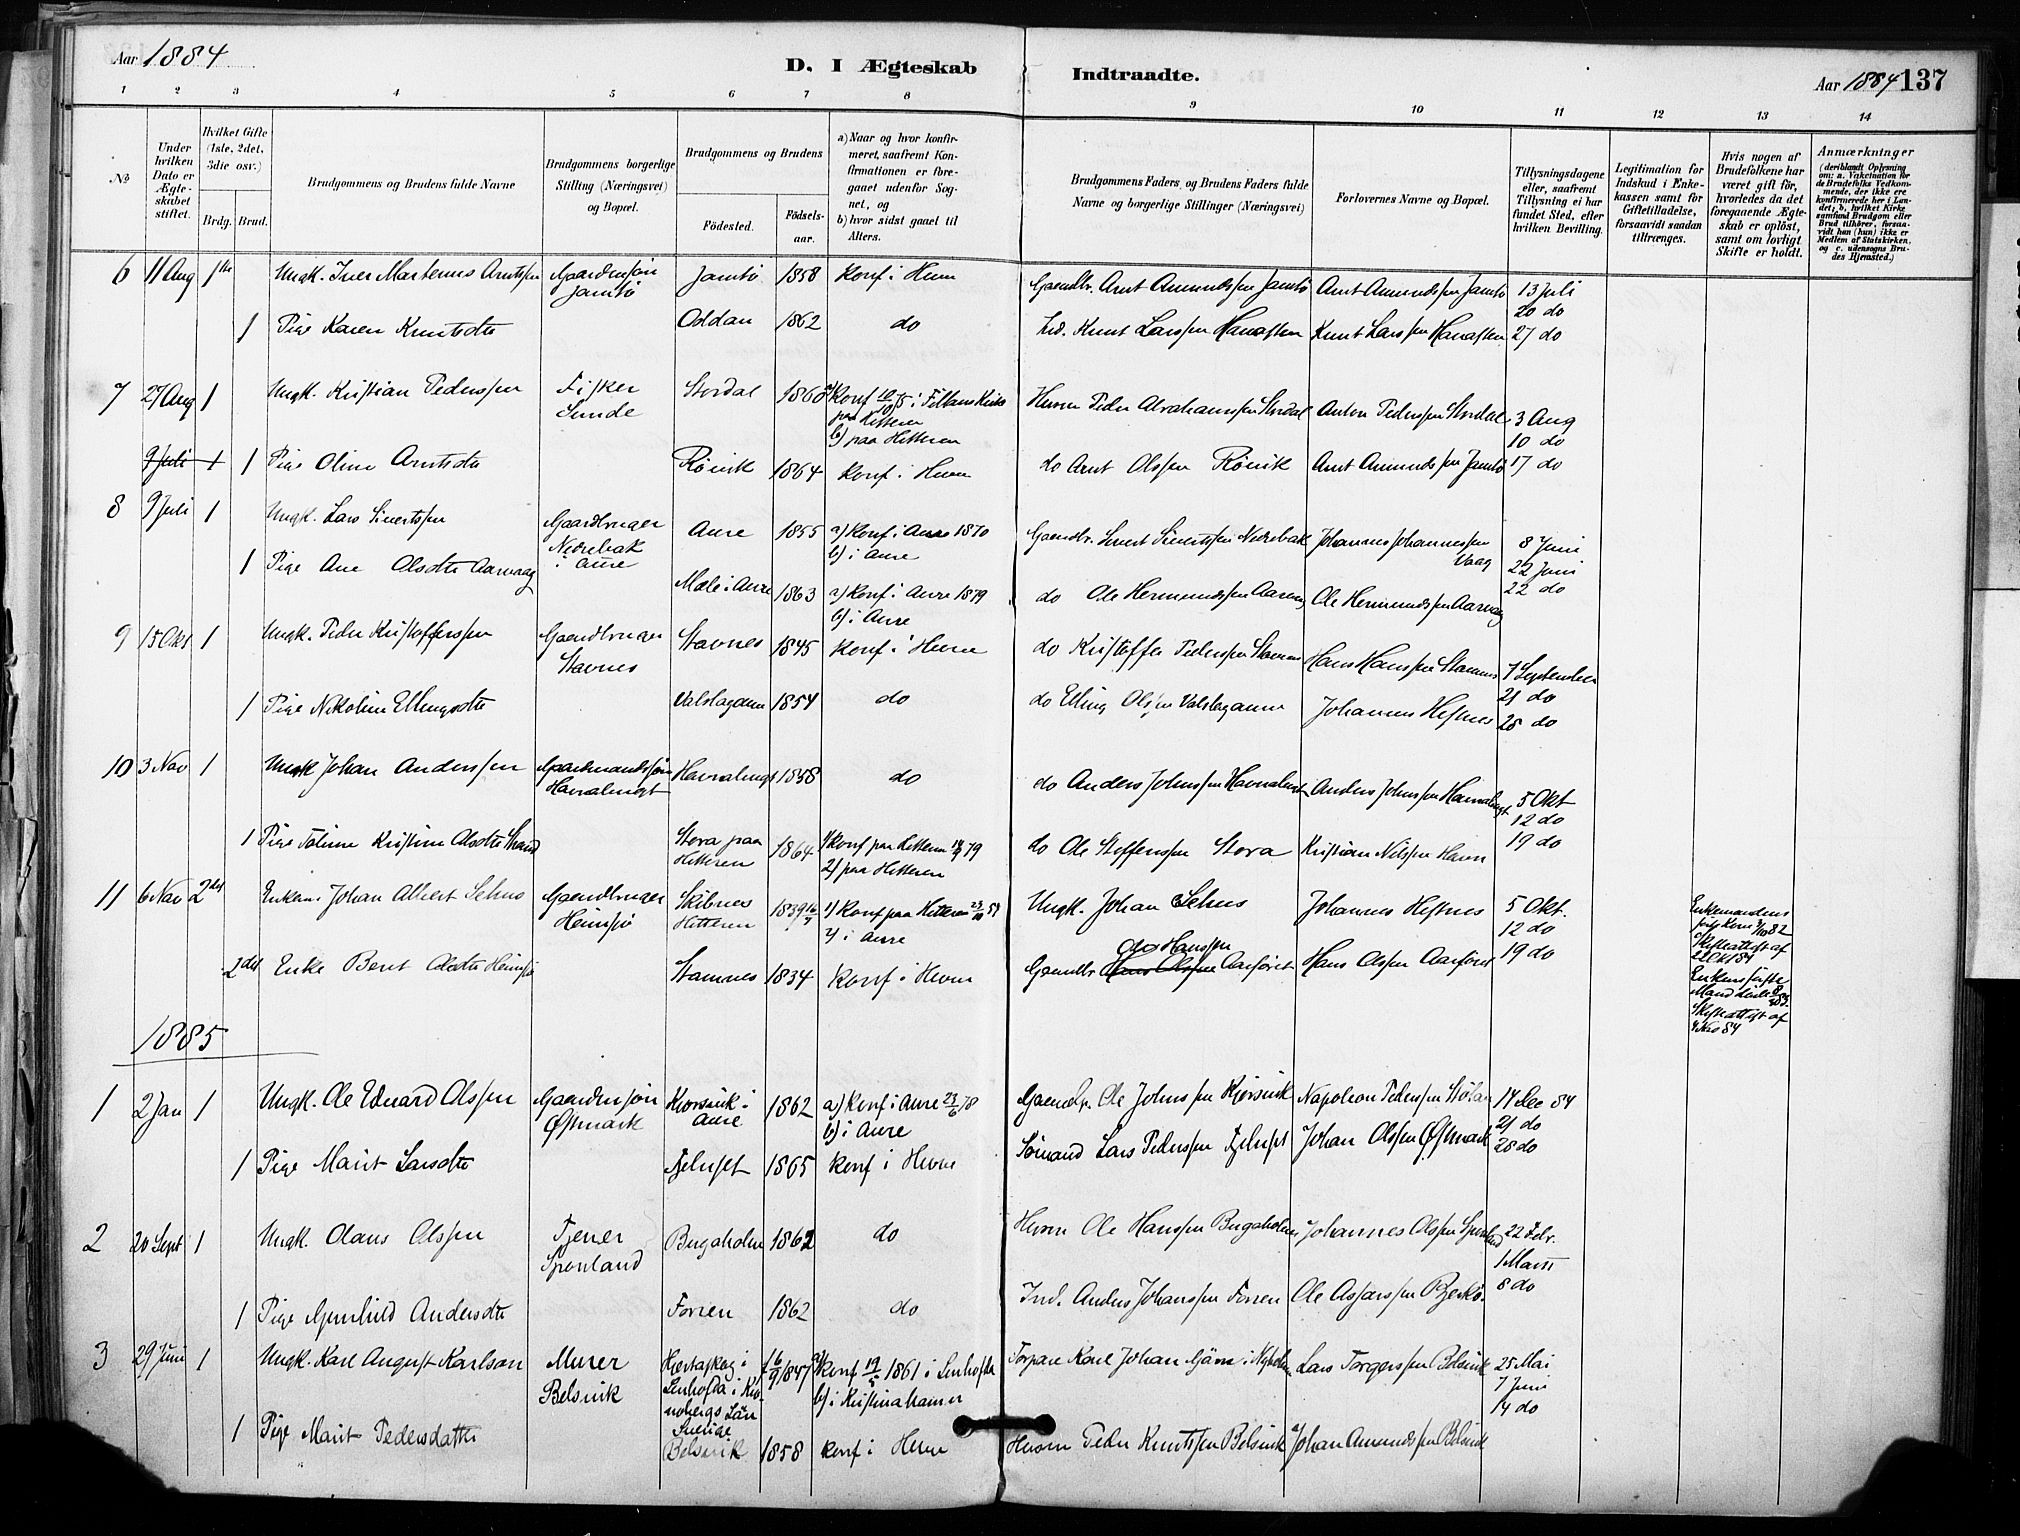 Aar 1884
D. I Ægteskab
Indtraadte.
Aar 1884 137
1 2 3 4 5 6 7 8 9 10 11 12 13 14
No
Under hvilken Dato er Ægteskabet stiftet.
Hvilket Gifte (1ste, 2det, 3die osv.)
Brdg. Brud.
Brudgommens og Brudens fulde Navne
Brudgommens borgerlige Stilling (Næringsvei) og Bopæl.
Brudgommens og Brudens
Fødested. Fødselsaar.
a) Naar og hvor konfirmeret, saafremt Konfirmationen er foregaaet udenfor Sognet, og
b) hvor sidst gaaet til Alters.
Brudgommens Faders og Brudens Faders fulde Navne og borgerlige Stillinger (Næringsvei)
Forlovernes Navne og Bopæl.
Tillysningsdagene eller, saafremt Tillysning ei har fundet Sted, efter hvilken Bevilling.
Legitimation for Indskud i Enkekassen samt for Giftetilladelse, forsaavidt saadan tiltrænges.
Hvis nogen af Brudefolkene har været gift før, hvorledes da det foregaaende Ægteskab er opløst, samt om lovligt Skifte er holdt.
Anmærkninger
(deriblandt Oplysning om: a. Vakcination for de Brudefolks Vedkommende, der ikke ere konfirmerede her i Landet; b. hvilket Kirkesamfund Brudgom eller Brud tilhører, forsaavidt han (hun) ikke er Medlem af Statskirken, og c. udensogns Brudes Hjemsted.)
6 11 Aug 1ste Ungk. Iver Martenus Arntssen Gaardmsøn Jamtø Jamtø 1858 Konf. i Hevne Gaardbr. Arnt Amundssen Jamtø Arnt Amundssen Jamtø 13 Juli
20 do
1 Pige Karen Knutsdtr Oddan 1862 do Knut Larssen Knut Larssen 27 do
7 27 Aug 1 Ungk. Kristian Pederssen Fisker Sunde Stordal 1860 a) Konf i Fillans Kirke paa Hitteren
b) paa Hitteren Husm Peder Abrahamssen Stordal Anton Pederssen Stordal 3 Aug
10 do
9 Juli 1 1 Pige Oline Arntsdtr Rønvik 1864 Konf. i Hevne do Arnt Olssen Rønvik Arnt Amundssen Jamtø 17 do
8 9 Juli 1 Ungk. Lars Sivertssen Gaardbruger Nedrebak i Aure Aure 1855 a) Konf. i Aure 1870
b) i Aure Gaardbr. Sivert Sivertssen Nedrebak Johannes Johannessen Vaag 8 Juni
22 Juni
1 Pige Ane Olsdtr Aarvaag Mæle i Aure 1863 a) Konf. i Aure 1879
b) i Aure do Ole Hermundssen Aarvaag Ole Hermundssen Aarvaag 22 do
9 15 Okt 1 Ungk. Peder Kristofferssen Gaardbruger Stavnes Stavnes 1845 Konf. i Hevne do Kristoffer Pederssen Stavnes Hans Hanssen Stamnes 7 September
21 do
1 Pige Nikoline Ellingsdtr Valslagdem 1854 do do Elling Olssen Johannes Hestnes 28 do
10 3 Nov 1 Ungk Johan Anderssen Gaardmandssøn 1858 do do Anders Johnssen Anders Johnssen 5 Okt
12 do
1 Pige Kristine Olsdtr Strand Stora paa Hitteren 1864 1) Konf paa Hitteren 79
2) paa Hitteren do Ole Steffenssen Stora Kristian Nilssen Havn 19 do
11 6 Nov 2det Enkem. Johan Albert Selnes Gaardbruger Heimsjø Skibnes Hitteren 1839 16/7 1) Konf paa Hitteren
2) i Aure Ungk. Johan Selnes Johannes Hestnes 5 Okt.
12 do
2det Enke Beret Olsdtr Heimsjø Stamnes 1834 Konf. i Hevne Gaardbr. Hans Olssen Ole Hanssen Aarsoret Hans Olssen Aarsoret 19 do
Enkemandens
Skifteattest af
22 Okt 84
Enkens første
Mand
Skifteattest af
4 Nov 84
1885
1 2 Jan 1 Ungk. Ole Edvard Olssen Gaardmsøn Østmark Kjorsvik i Aure 1862 a) Konf. i Aure 23/6 78
b) i Aure Gaardbr. Ole Johnssen Kjorsvik Napoleon Pederssen Stølan 14 Dec 84
21 do
1 Pige Marit Larsdtr 1865 Konf i Hevne Sømand Lars Pederssen Johan Olssen Østmark 28 do
2 20 Sept 1 Ungk. Claus Olssen Tjener Spónland Bugaholm 1862 do Husm Ole Hanssen Bugaholmen Johannes Olssen 22 Febr.
1 Marts
1 Pige Gunhild Andersdtr Forren 1862 do Ind. Anders Johanssen Forren Ole 8 do
3 29 Juni 1 Ungk. Karl August Karlson Murer Belsvik Hjortaskog i Linhofta i Kronobergs Län Sverige 6/9 1847 a) Konf 19/5 1861 i Linhofta
b) i Kristinahamn Torpare Karl Johan Lars Torgerssen Belsvik 25 Mai
7 Juni
14 do
1 Pige Marit Pedersdatter Belsvik 1858 Konf i Hevne Husm Peder Knutssen Belsvik Johan Amundssen Belsvik